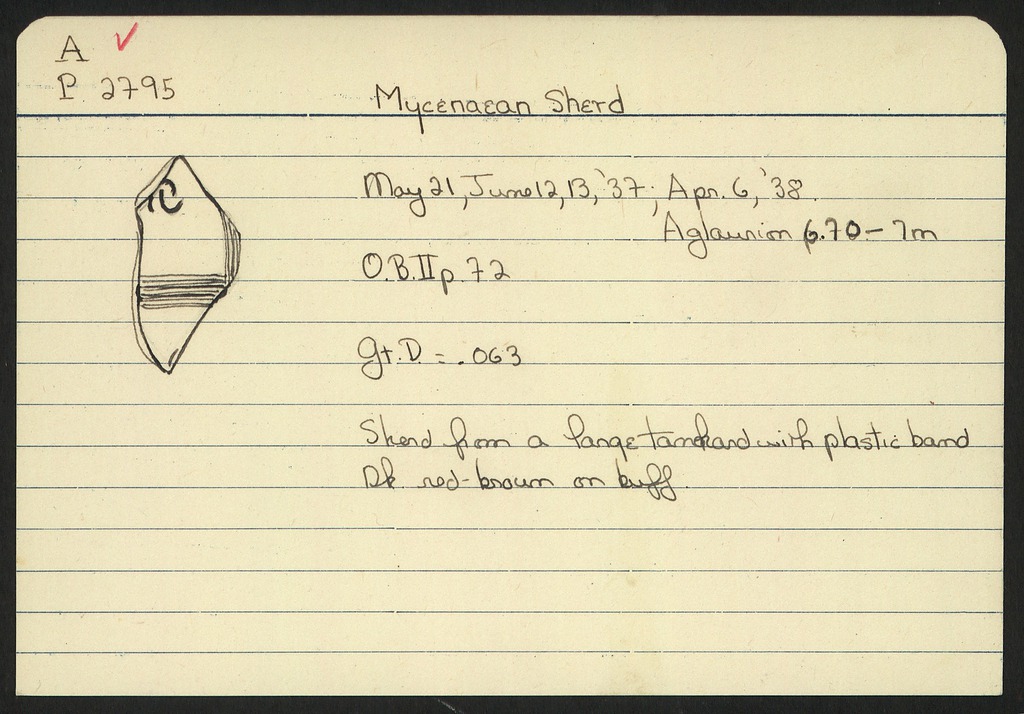 A ✓
P 2795
Mycenaean Sherd
May 21, June 12, 13, '37; Apr. 6, '38.
Aglaurion 6.70 - 7m
O.B.II p. 72
Gt. D. = .063
Sherd from a large tankard with plastic band
Dk red-brown on buff.